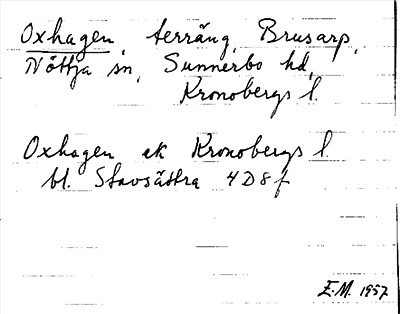 Oxhagen, terräng, Brusarp,
Nöttja sn, Sunnerbo hd,
Kronobergs l.
Oxhagen ek Kronobergs l.
bl. Stavsätra 4D8f
E.M. 1957